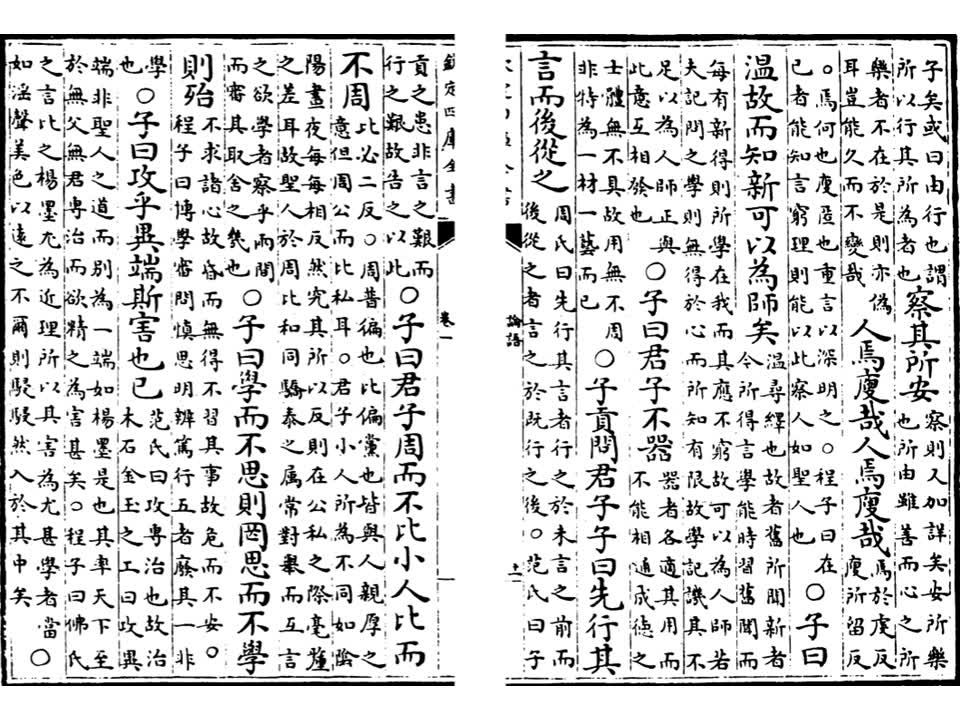 子矣或曰由行也謂所以行其所為者也察其所安察則又加詳矣安所樂也所由雖善而心之所
樂者不在於是則亦偽耳豈能久而不變哉人焉廋哉人焉廋哉焉於虔反廋所留反
○焉何也廋匿也重言以深明之○程子曰在已者能知言窮理則能以此察人如聖人也○子曰
溫故而知新可以為師矣溫尋繹也故者舊所聞新者今所得言學能時習舊聞而
每有新得則所學在我而其應不窮故可以為人師若夫記問之學則無得於心而所知有限故學記譏其不
足以為人師正與此意互相發也○子曰君子不器器者各適其用而不能相通成德之
士體無不具故用無不周非特為一材一藝而已○子貢問君子子曰先行其
言而後從之周氏曰先行其言者行之於未言之前而後從之者言之於既行之後○范氏曰子
論語 十一
欽定四庫全書 卷一
貢之患非言之艱而行之艱故告之以此○子曰君子周而不比小人比而
不周比必二反○周普徧也比偏黨也皆與人親厚之意但周公而比私耳○君子小人所為不同如陰
陽晝夜每每相反然究其所以反則在公私之際毫釐之差耳故聖人於周比和同驕泰之屬常對舉而互言
之欲學者察乎兩間而審其取舍之幾也○子曰學而不思則罔思而不學
則殆不求諸心故昏而無得不習其事故危而不安○程子曰博學審問慎思明辨篤行五者廢其一非
學也○子曰攻乎異端斯害也已范氏曰攻專治也故治木石金玉之工曰攻異
端非聖人之道而別為一端如楊墨是也其率天下至於無父無君專治而欲精之為害甚矣○程子曰佛氏
之言比之楊墨尤為近理所以其害為尤甚學者當如淫聲美色以遠之不爾則駸駸然入於其中矣○